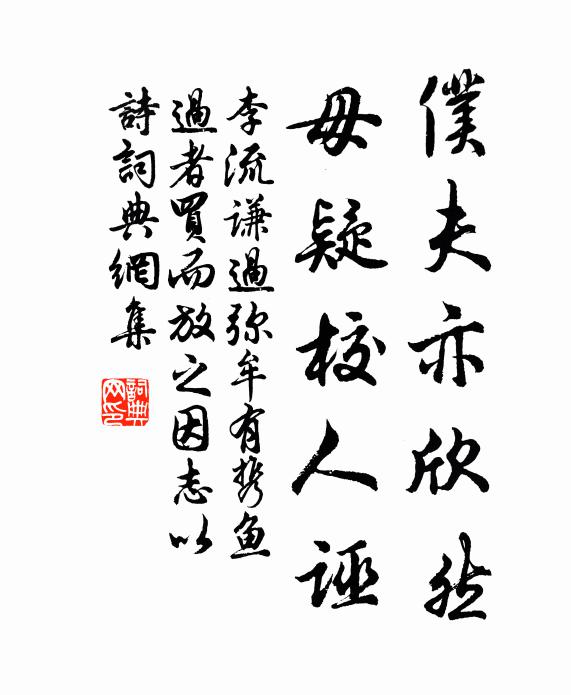 僕夫亦欣然
毋疑校人誣
李流谦過弥牟有携魚
過者買而放之因志以
詩詞典網集
詞典网印